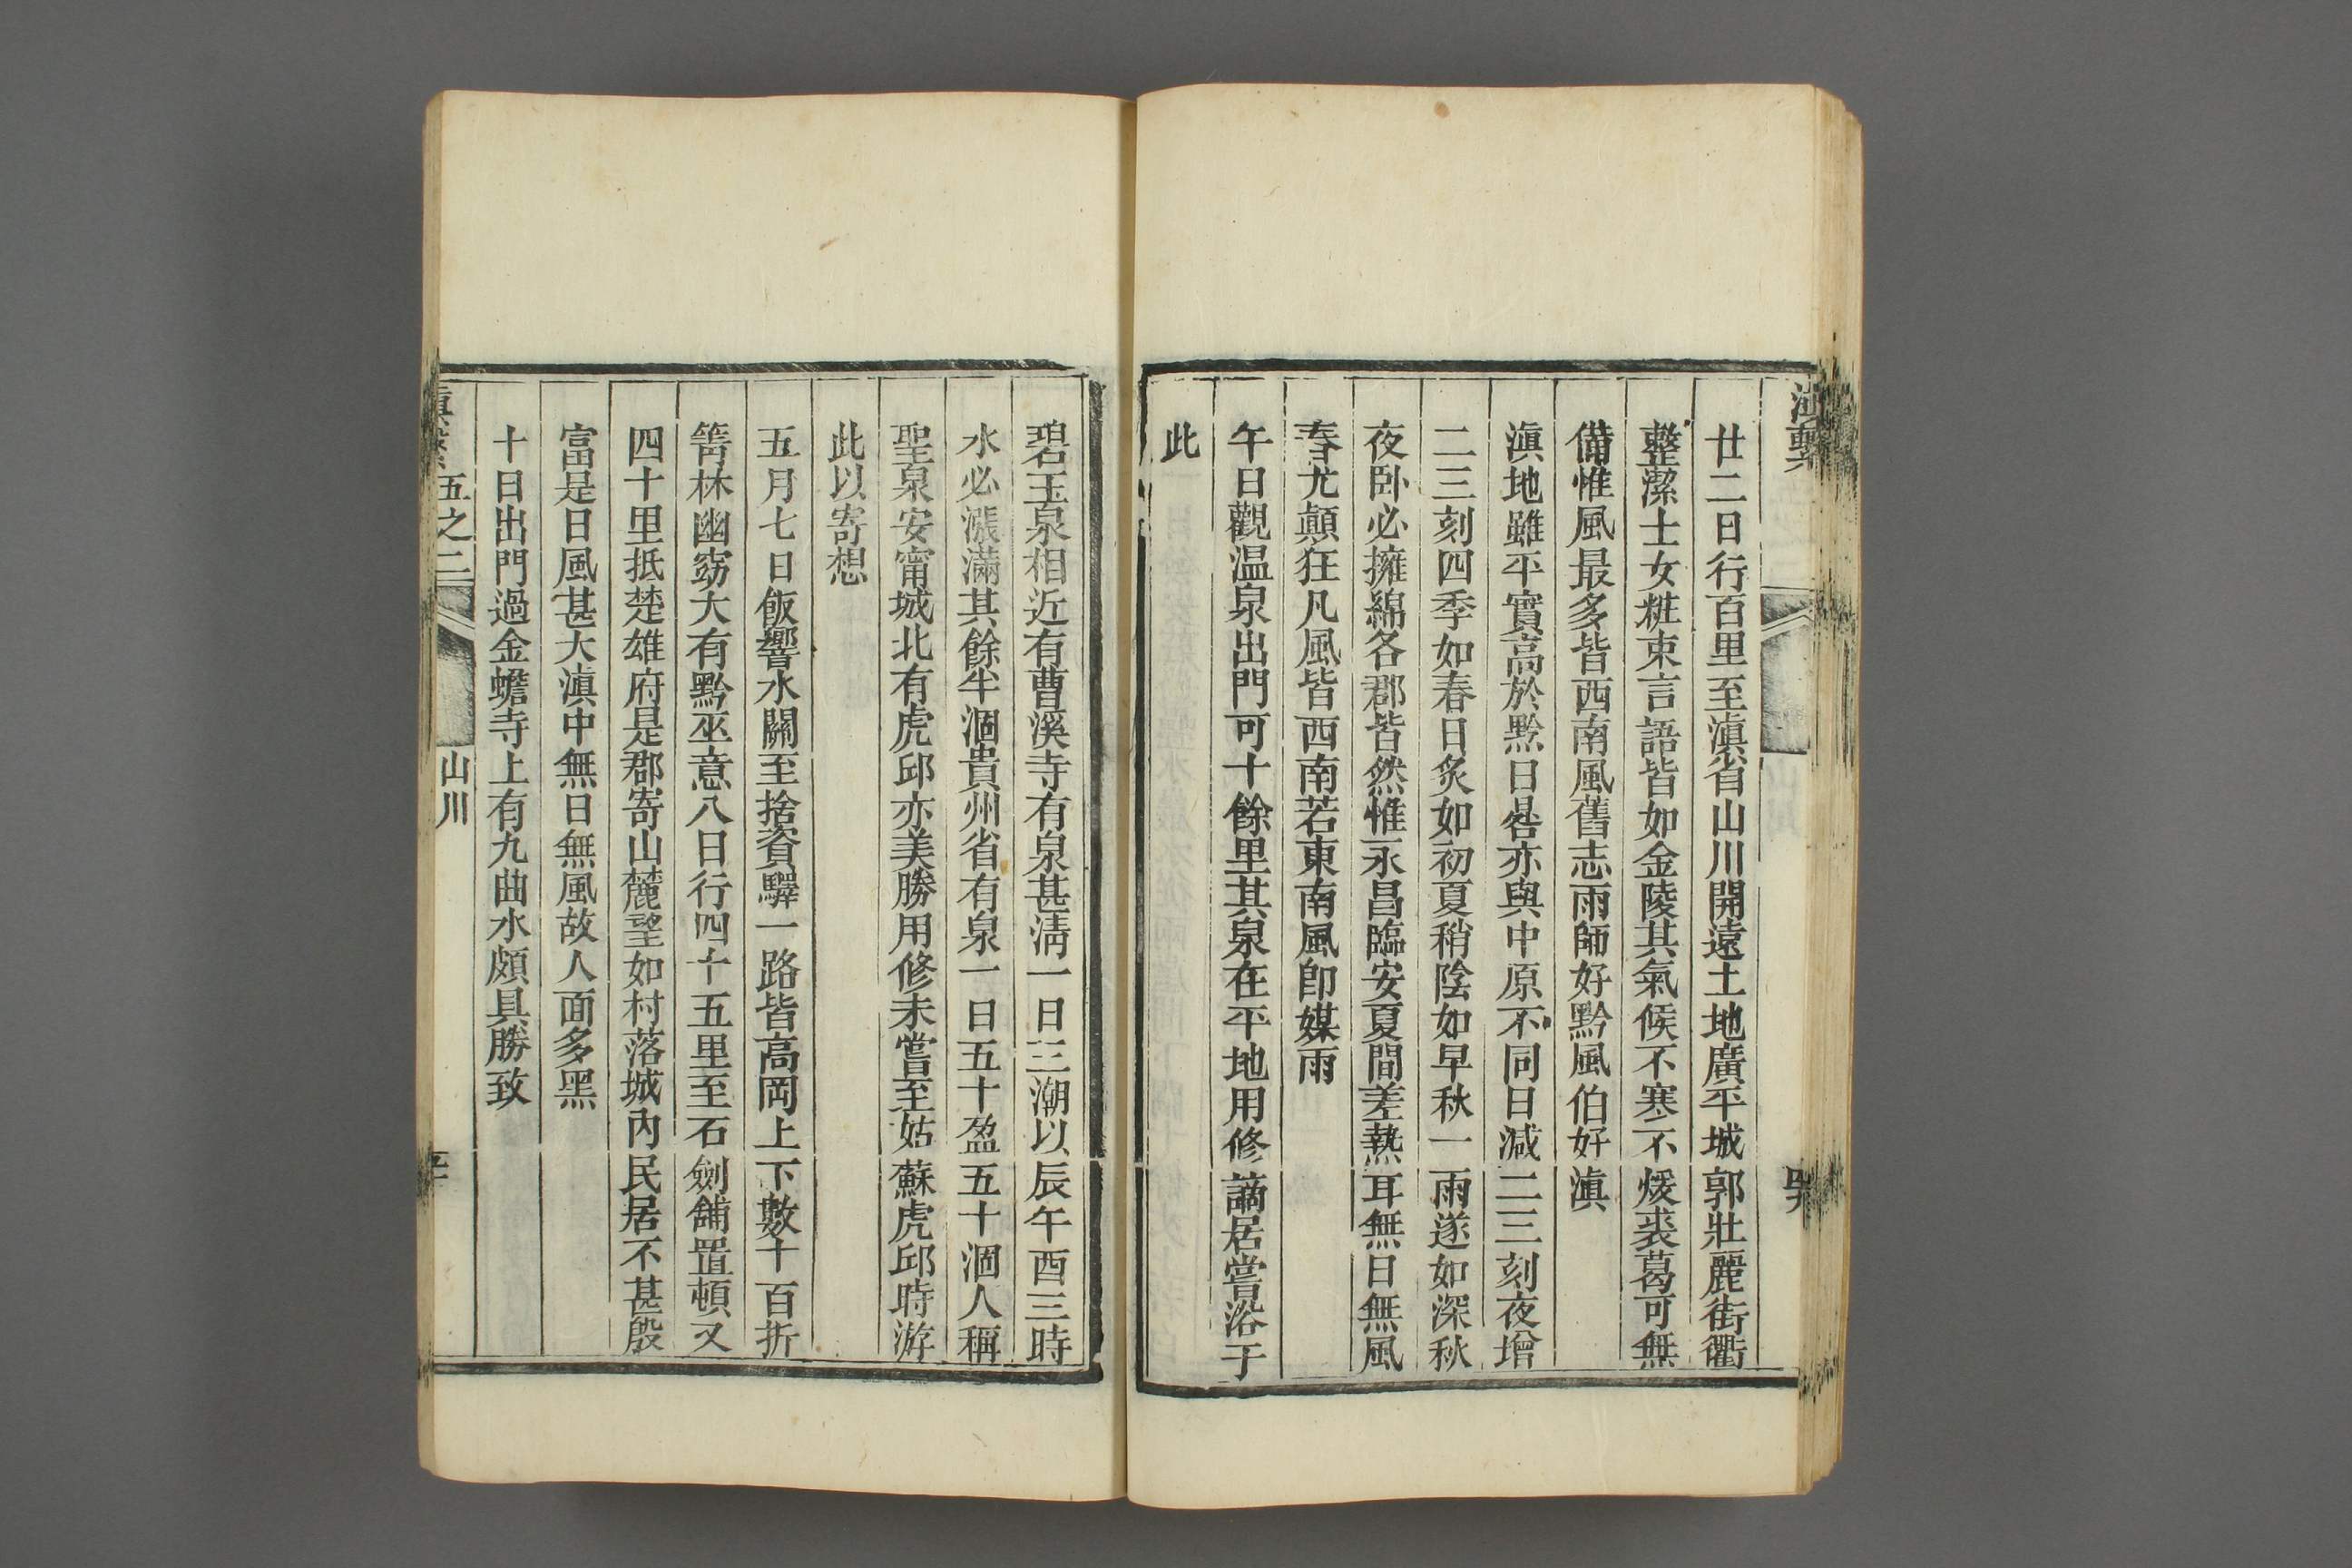 滇繫
廿二日行百里至滇省山川開遠土地廣平城郭壯麗街衢
整潔士女粧束言語皆如金陵其氣候不寒不煖裘葛可無
備惟風最多皆西南風舊志雨師好黔風伯好滇
滇地雖平實高於黔日晷亦與中原不同日減二三刻夜增
二三刻四季如春日炙如初夏稍陰如早秋一雨遂如深秋
夜卧必擁綿各郡皆然惟永昌臨安夏間差熱耳無日無風
春尤顛狂凡風皆西南若東南風卽媒雨
午日觀温泉出門可十餘里其泉在平地用修謫居嘗浴于
此
碧玉泉相近有曹溪寺有泉甚淸一日三潮以辰午酉三時
水必漲滿其餘半涸貴州省有泉一日五十盈五十涸人稱
聖泉安甯城北有虎邱亦美勝用修未嘗至姑蘇虎邱時游
此以寄想
五月七日飯響水關至捨資驛一路皆高岡上下數十百折
箐林幽窈大有黔巫意八日行四十五里至石劍舖置頓又
四十里抵楚雄府是郡寄山麓望如村落城內民居不甚殷
富是日風甚大滇中無日無風故人面多黑
十日出門過金蟾寺上有九曲水頗具勝致
五之二
山川